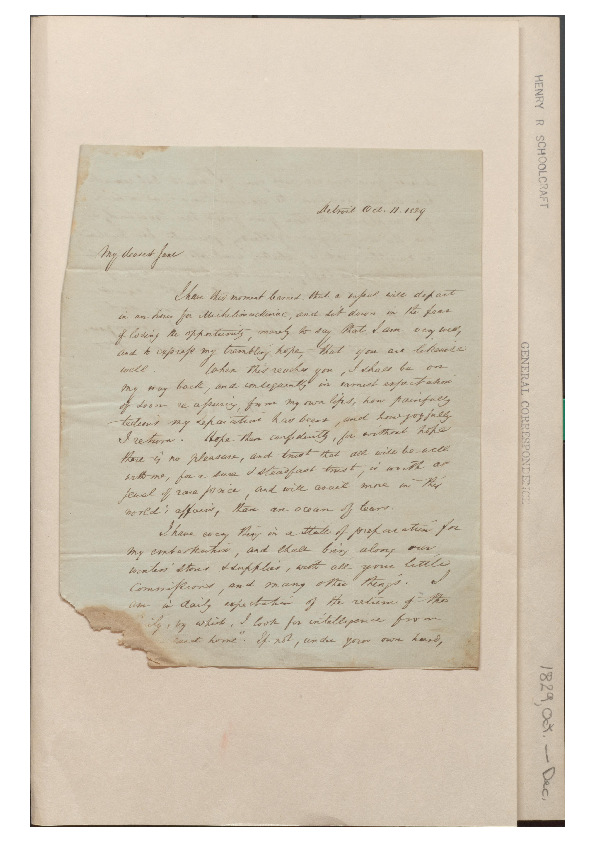 Detroit Oct. 11. 1829
My dearest Jane
I have this moment learned that a vessel will depart
in an hour for Michilimackinac, and sit down in the fear
of losing the opportunity, merely to say that I am very well,
and to express my trembling hope, that you are likewise
well. When this reaches you, I shall be on
my way back, and consequently in earnest expectation
of soon re assuring, from my own lips, how painfully
tedious my separation has been, and how joyfully
I return. Hope then confidently, for without hope
there is no pleasure, and trust that all will be well
with me, for a sure & steadfast trust, is worth a
jewel of rare price, and will avail more in this
world's affairs, than an ocean of tears.
I have every thing in a state of preparation for
my embarkation, and shall bring along our
winters stores & supplies, with all your little
commissions, and many other things. I
am in daily expectation of the return of the
by which, I look for intelligence from
home". If not, under your own hand,
HENRY R SCHOOLCRAFT
GENERAL CORRESPONDENCE
1829, Oct. — Dec.